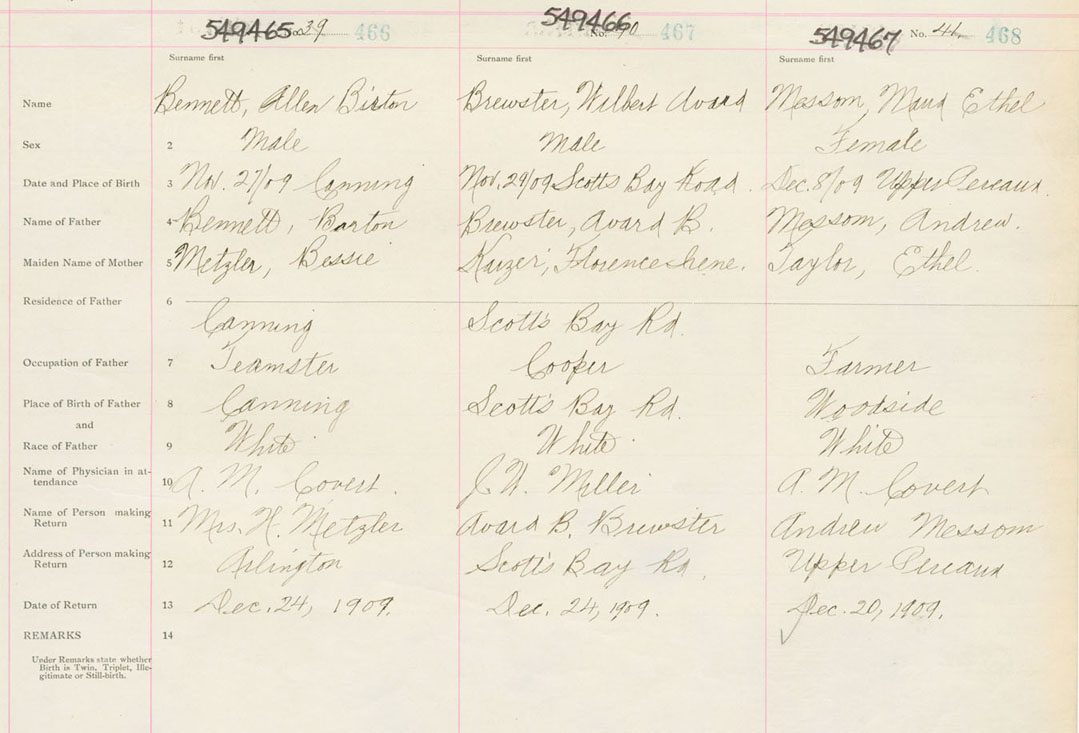 549465 39 466 549466 No. 40 467 549467 No. 41 468
Surname first Surname first Surname first
Name Bennett, Allen Burton Brewster, Wilbert Avard Messom, Maud Ethel
Sex 2 Male Male Female
Date and Place of Birth 3 Nov. 27/09 Canning Nov. 29/09 Scotts Bay Road. Dec. 8/09 Upper Pereaux.
Name of Father 4 Bennett, Barton Brewster, Avard B. Messom, Andrew.
Maiden Name of Mother 5 Metzler, Bessie Kaizer, Florence Irene. Taylor, Ethel.
Residence of Father 6
Canning Scott's Bay Rd.
Occupation of Father 7 Teamster Cooper Farmer
Place of Birth of Father 8 Canning Scott's Bay Rd. Woodside
and
Race of Father 9 White White White
Name of Physician in at-
tendance 10 A. M. Covert. J. W. Miller A. M. Covert
Name of Person making
Return 11 Mrs. H. Metzler Avard B. Brewster Andrew Messom
Address of Person making
Return 12 Arlington Scott's Bay Rd. Upper Pereaux
Date of Return 13 Dec. 24, 1909. Dec. 24, 1909. Dec. 20, 1909.
REMARKS 14
Under Remarks state whether
Birth is Twin, Triplet, Ille-
gitimate or Still-birth.